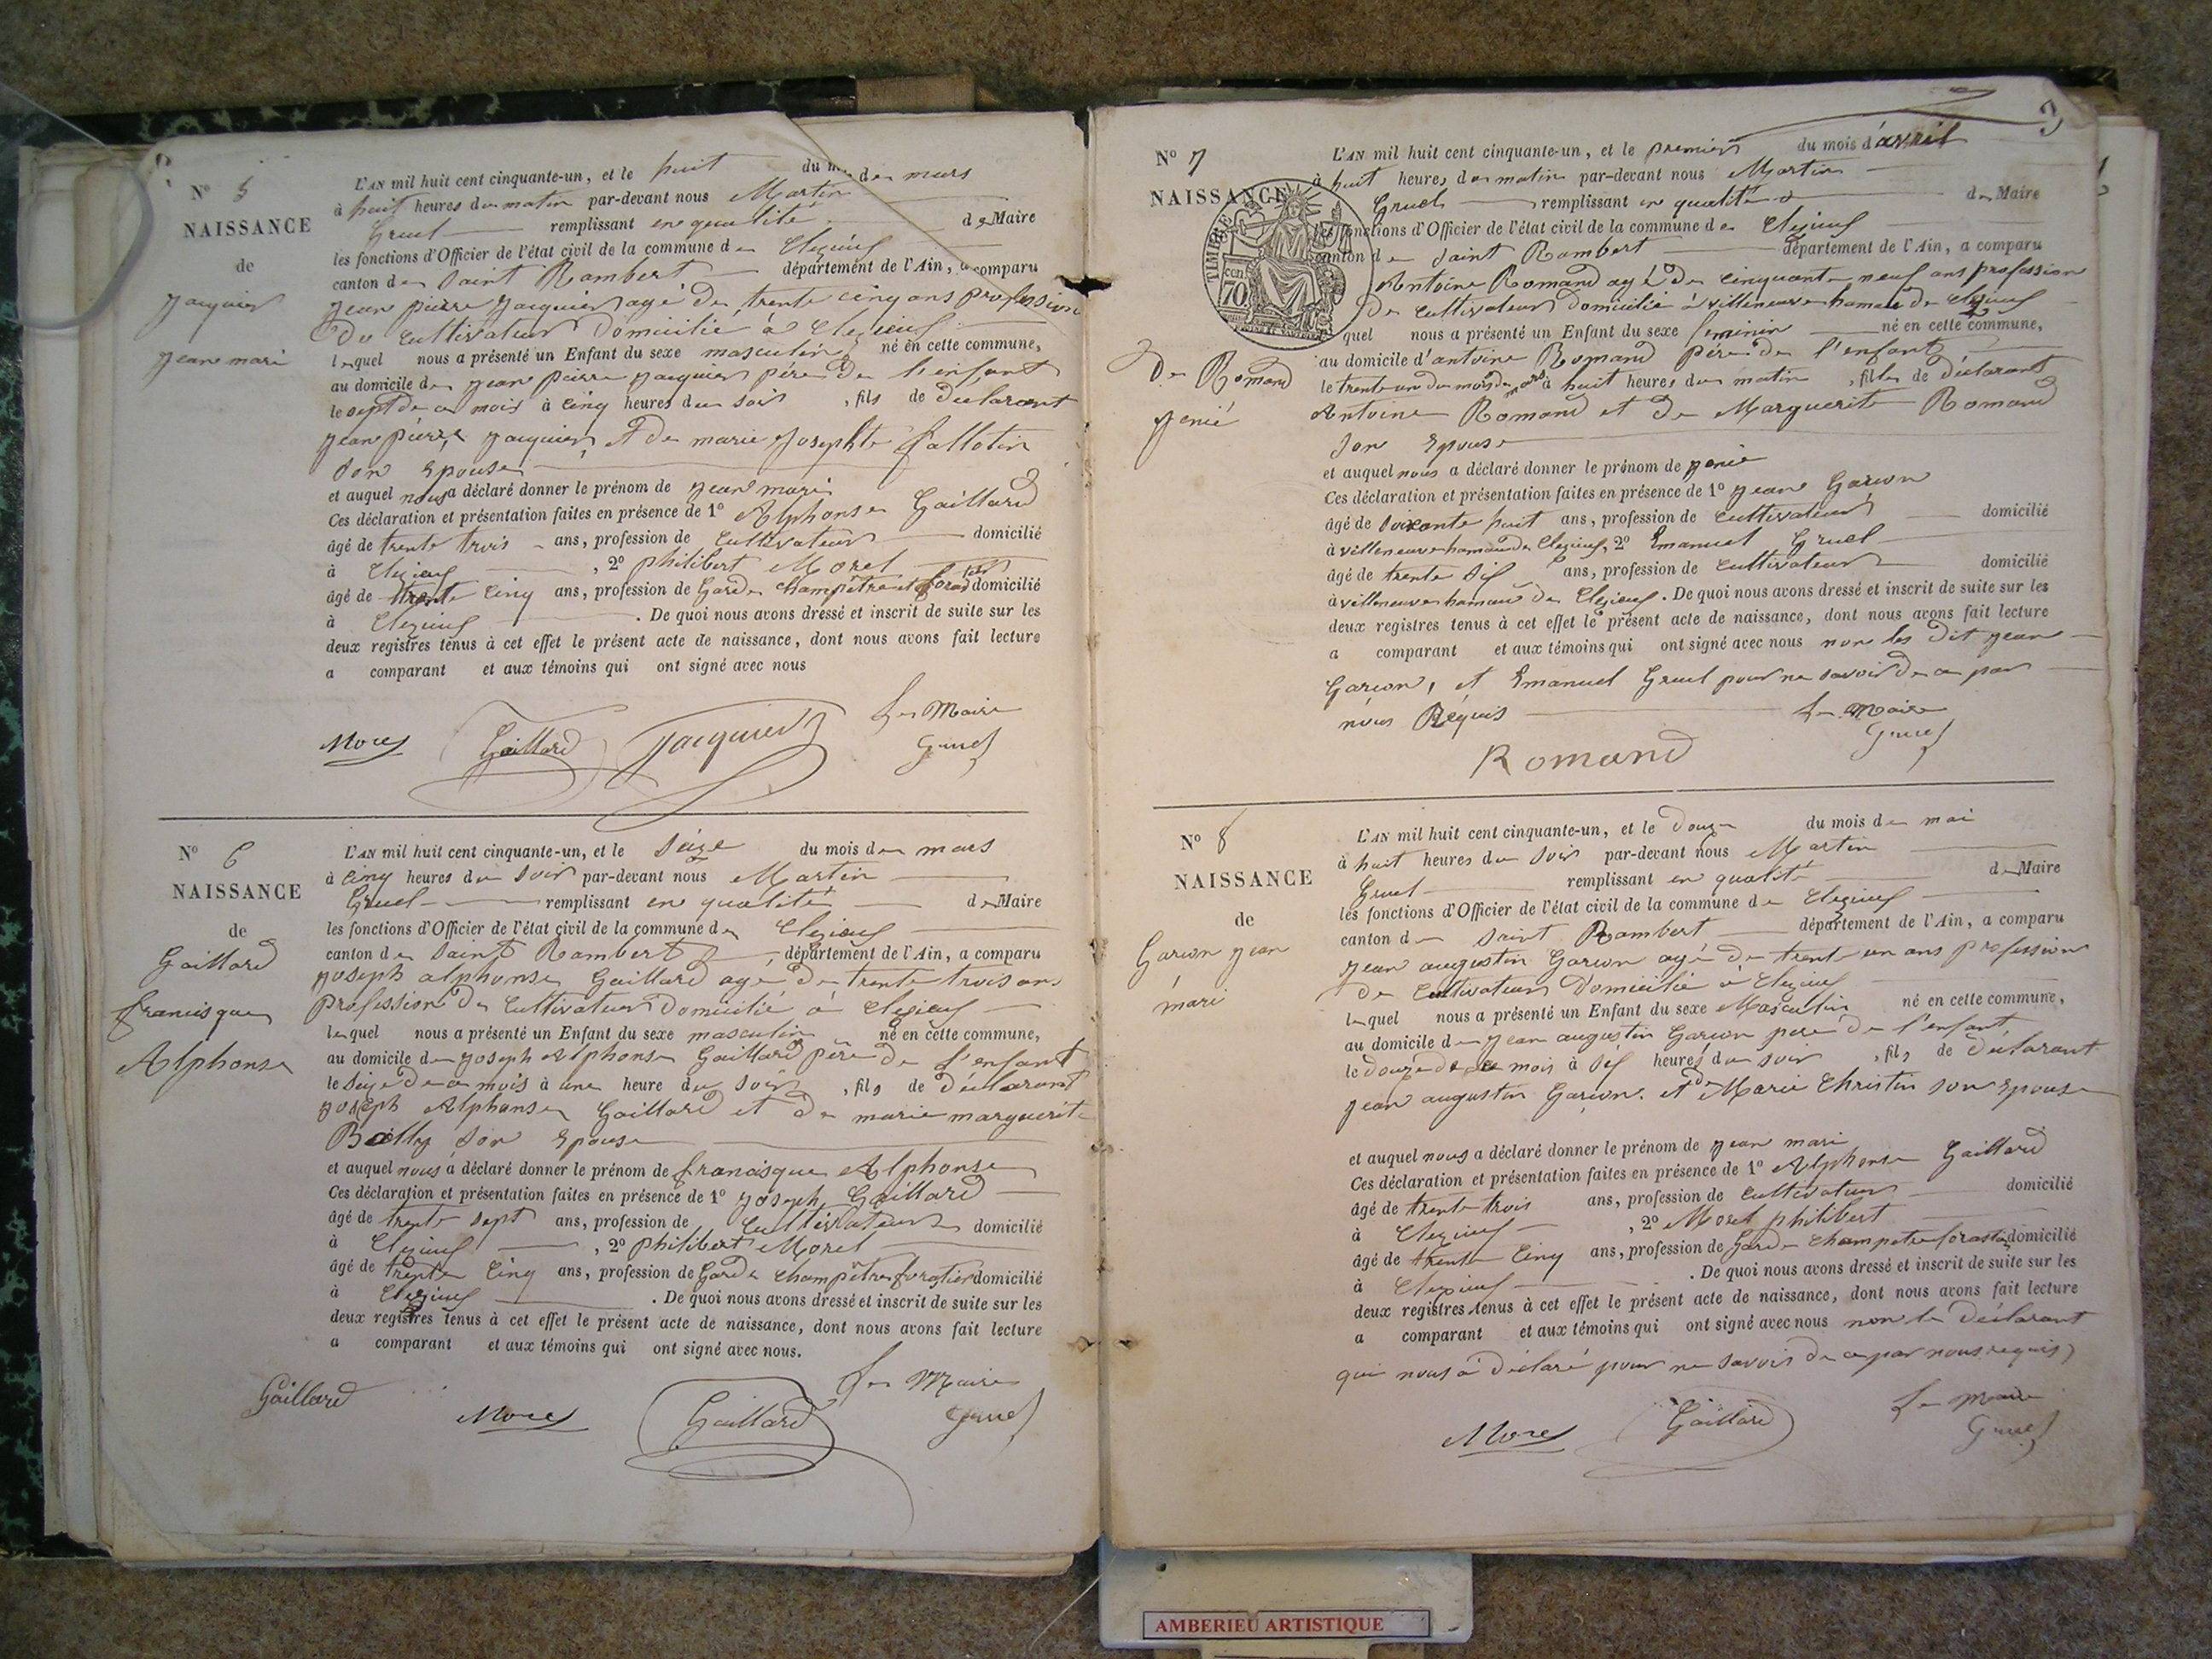 N° 5
NAISSANCE
de
Jacquier
jean mari
L'AN mil huit cent cinquante-un, et le huit du mois de mars
à huit heures du matin par-devant nous Martin
Gruel remplissant en qualité de Maire
les fonctions d'Officier de l'état civil de la commune de Clezieu
canton de Saint Rambert département de l'Ain, a comparu
jean pierre jacquier agé de trente cinq ans profession
de cultivateur domicilié à Clezieu
lequel nous a présenté un Enfant du sexe masculin né en cette commune,
au domicile de jean pierre jacquier père de l'enfant
le sept de ce mois à cinq heures du soir, fils de déclarant
jean pierre jacquier et de marie josephte fallotin
son epouse
et auquel nous a déclaré donner le prénom de jean mari
Ces déclaration et présentation faites en présence de 1° Alphonse Gaillard
âgé de trente trois ans, profession de cultivateur domicilié
à Clezieu, 2° philibert Morel
âgé de trente cinq ans, profession de Garde champêtre et forestier domicilié
à Clezieu. De quoi nous avons dressé et inscrit de suite sur les
deux registres tenus à cet effet le présent acte de naissance, dont nous avons fait lecture
a comparant et aux témoins qui ont signé avec nous
Le Maire
Morel Gaillard Jacquier Gruel
N° 6
NAISSANCE
de
Gaillard
francisque
Alphonse
L'AN mil huit cent cinquante-un, et le Seize du mois de mars
à cinq heures du soir par-devant nous Martin
Gruel remplissant en qualité de Maire
les fonctions d'Officier de l'état civil de la commune de Clezieu
canton de Saint Rambert département de l'Ain, a comparu
joseph alphonse Gaillard agé de trente trois ans
profession de cultivateur domicilié à Clezieu
lequel nous a présenté un Enfant du sexe masculin né en cette commune,
au domicile de joseph Alphonse Gaillard père de l'enfant
le seize de ce mois à une heure du soir, fils de déclarant
joseph Alphonse Gaillard et de marie marguerite
Bailly son epouse
et auquel nous a déclaré donner le prénom de francisque Alphonse
Ces déclaration et présentation faites en présence de 1° joseph Gaillard
âgé de trente sept ans, profession de cultivateur domicilié
à Clezieu, 2° philibert Morel
âgé de trente cinq ans, profession de Garde champêtre foratier domicilié
à Clezieu. De quoi nous avons dressé et inscrit de suite sur les
deux registres tenus à cet effet le présent acte de naissance, dont nous avons fait lecture
a comparant et aux témoins qui ont signé avec nous.
Le Maire
Gaillard Morel Gaillard Gruel
3
N° 7
NAISSANCE
TIMBRE
70 cen
De Romand
jenie
L'AN mil huit cent cinquante-un, et le premier du mois d'avril
à huit heures du matin par-devant nous Martin
Gruel remplissant en qualité de Maire
les fonctions d'Officier de l'état civil de la commune de Clezieu
canton de Saint Rambert département de l'Ain, a comparu
Antoine Romand agé de cinquante neuf ans profession
de cultivateur domicilié à villeneuve hamau de Clezieu
quel nous a présenté un Enfant du sexe feminin né en cette commune,
au domicile d'antoine Romand père de l'enfant
le trente un du mois de mars à huit heures du matin, fille de déclarant
Antoine Romand et de Marguerite Romand
son epouse
et auquel nous a déclaré donner le prénom de jenie
Ces déclaration et présentation faites en présence de 1° jean Garson
âgé de soixante huit ans, profession de cultivateur domicilié
à villeneuve hamau de Clezieu, 2° Emanuel Gruel
âgé de trente six ans, profession de cultivateur domicilié
à villeneuve hamau de Clezieu. De quoi nous avons dressé et inscrit de suite sur les
deux registres tenus à cet effet le présent acte de naissance, dont nous avons fait lecture
a comparant et aux témoins qui ont signé avec nous non les dit jean
Garson, et Emanuel Gruel pour ne savoir de ce par
nous Réquis
Le Maire
Romand Gruel
N° 8
NAISSANCE
de
Garson jean
mari
L'AN mil huit cent cinquante-un, et le douze du mois de mai
à huit heures du soir par-devant nous Martin
Gruel remplissant en qualité de Maire
les fonctions d'Officier de l'état civil de la commune de Clezieu
canton de Saint Rambert département de l'Ain, a comparu
jean augustin Garson agé de trente un ans profession
de cultivateur domicilié à Clezieu
lequel nous a présenté un Enfant du sexe Masculin né en cette commune,
au domicile de jean augustin Garson pere de l'enfant
le douze de ce mois à six heures du soir, fils de déclarant
jean augustin Garson. et de Marie Christin son epouse
et auquel nous a déclaré donner le prénom de jean mari
Ces déclaration et présentation faites en présence de 1° Alphonse Gaillard
âgé de trente trois ans, profession de cultivateur domicilié
à Clezieu, 2° Morel philibert
âgé de trente cinq ans, profession de Garde champetre forastier domicilié
à Clezieu. De quoi nous avons dressé et inscrit de suite sur les
deux registres tenus à cet effet le présent acte de naissance, dont nous avons fait lecture
a comparant et aux témoins qui ont signé avec nous non le déclarant
qui nous à déclaré pour ne savoir de ce par nous requis
Le Maire
Morel Gaillard Gruel
AMBERIEU ARTISTIQUE